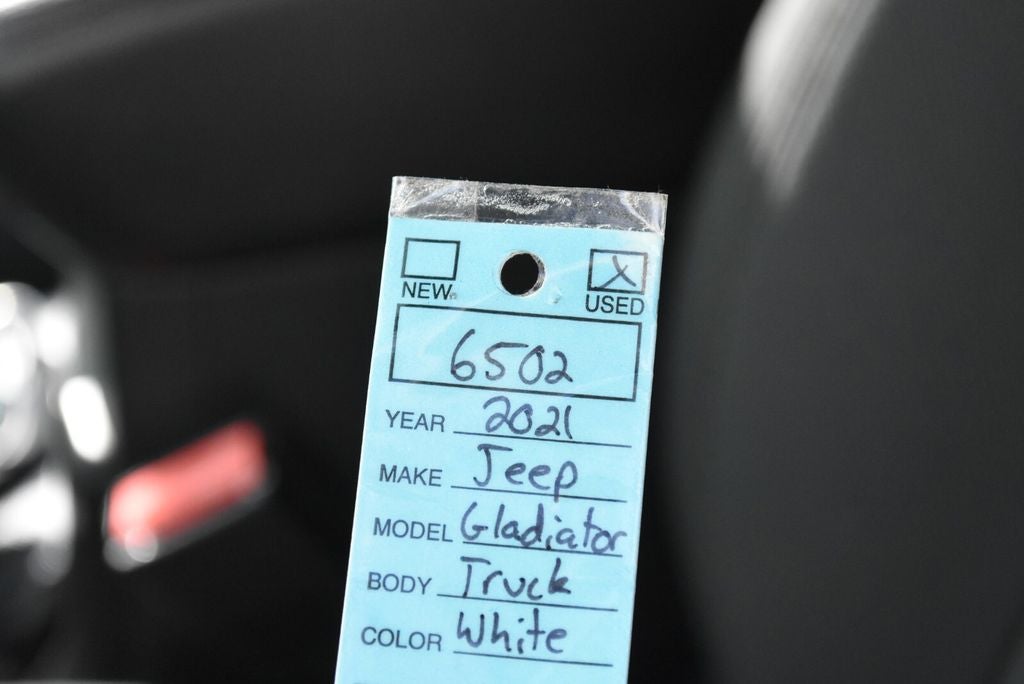 NEW USED
6502
YEAR 2021
MAKE Jeep
MODEL Gladiator
BODY Truck
COLOR White